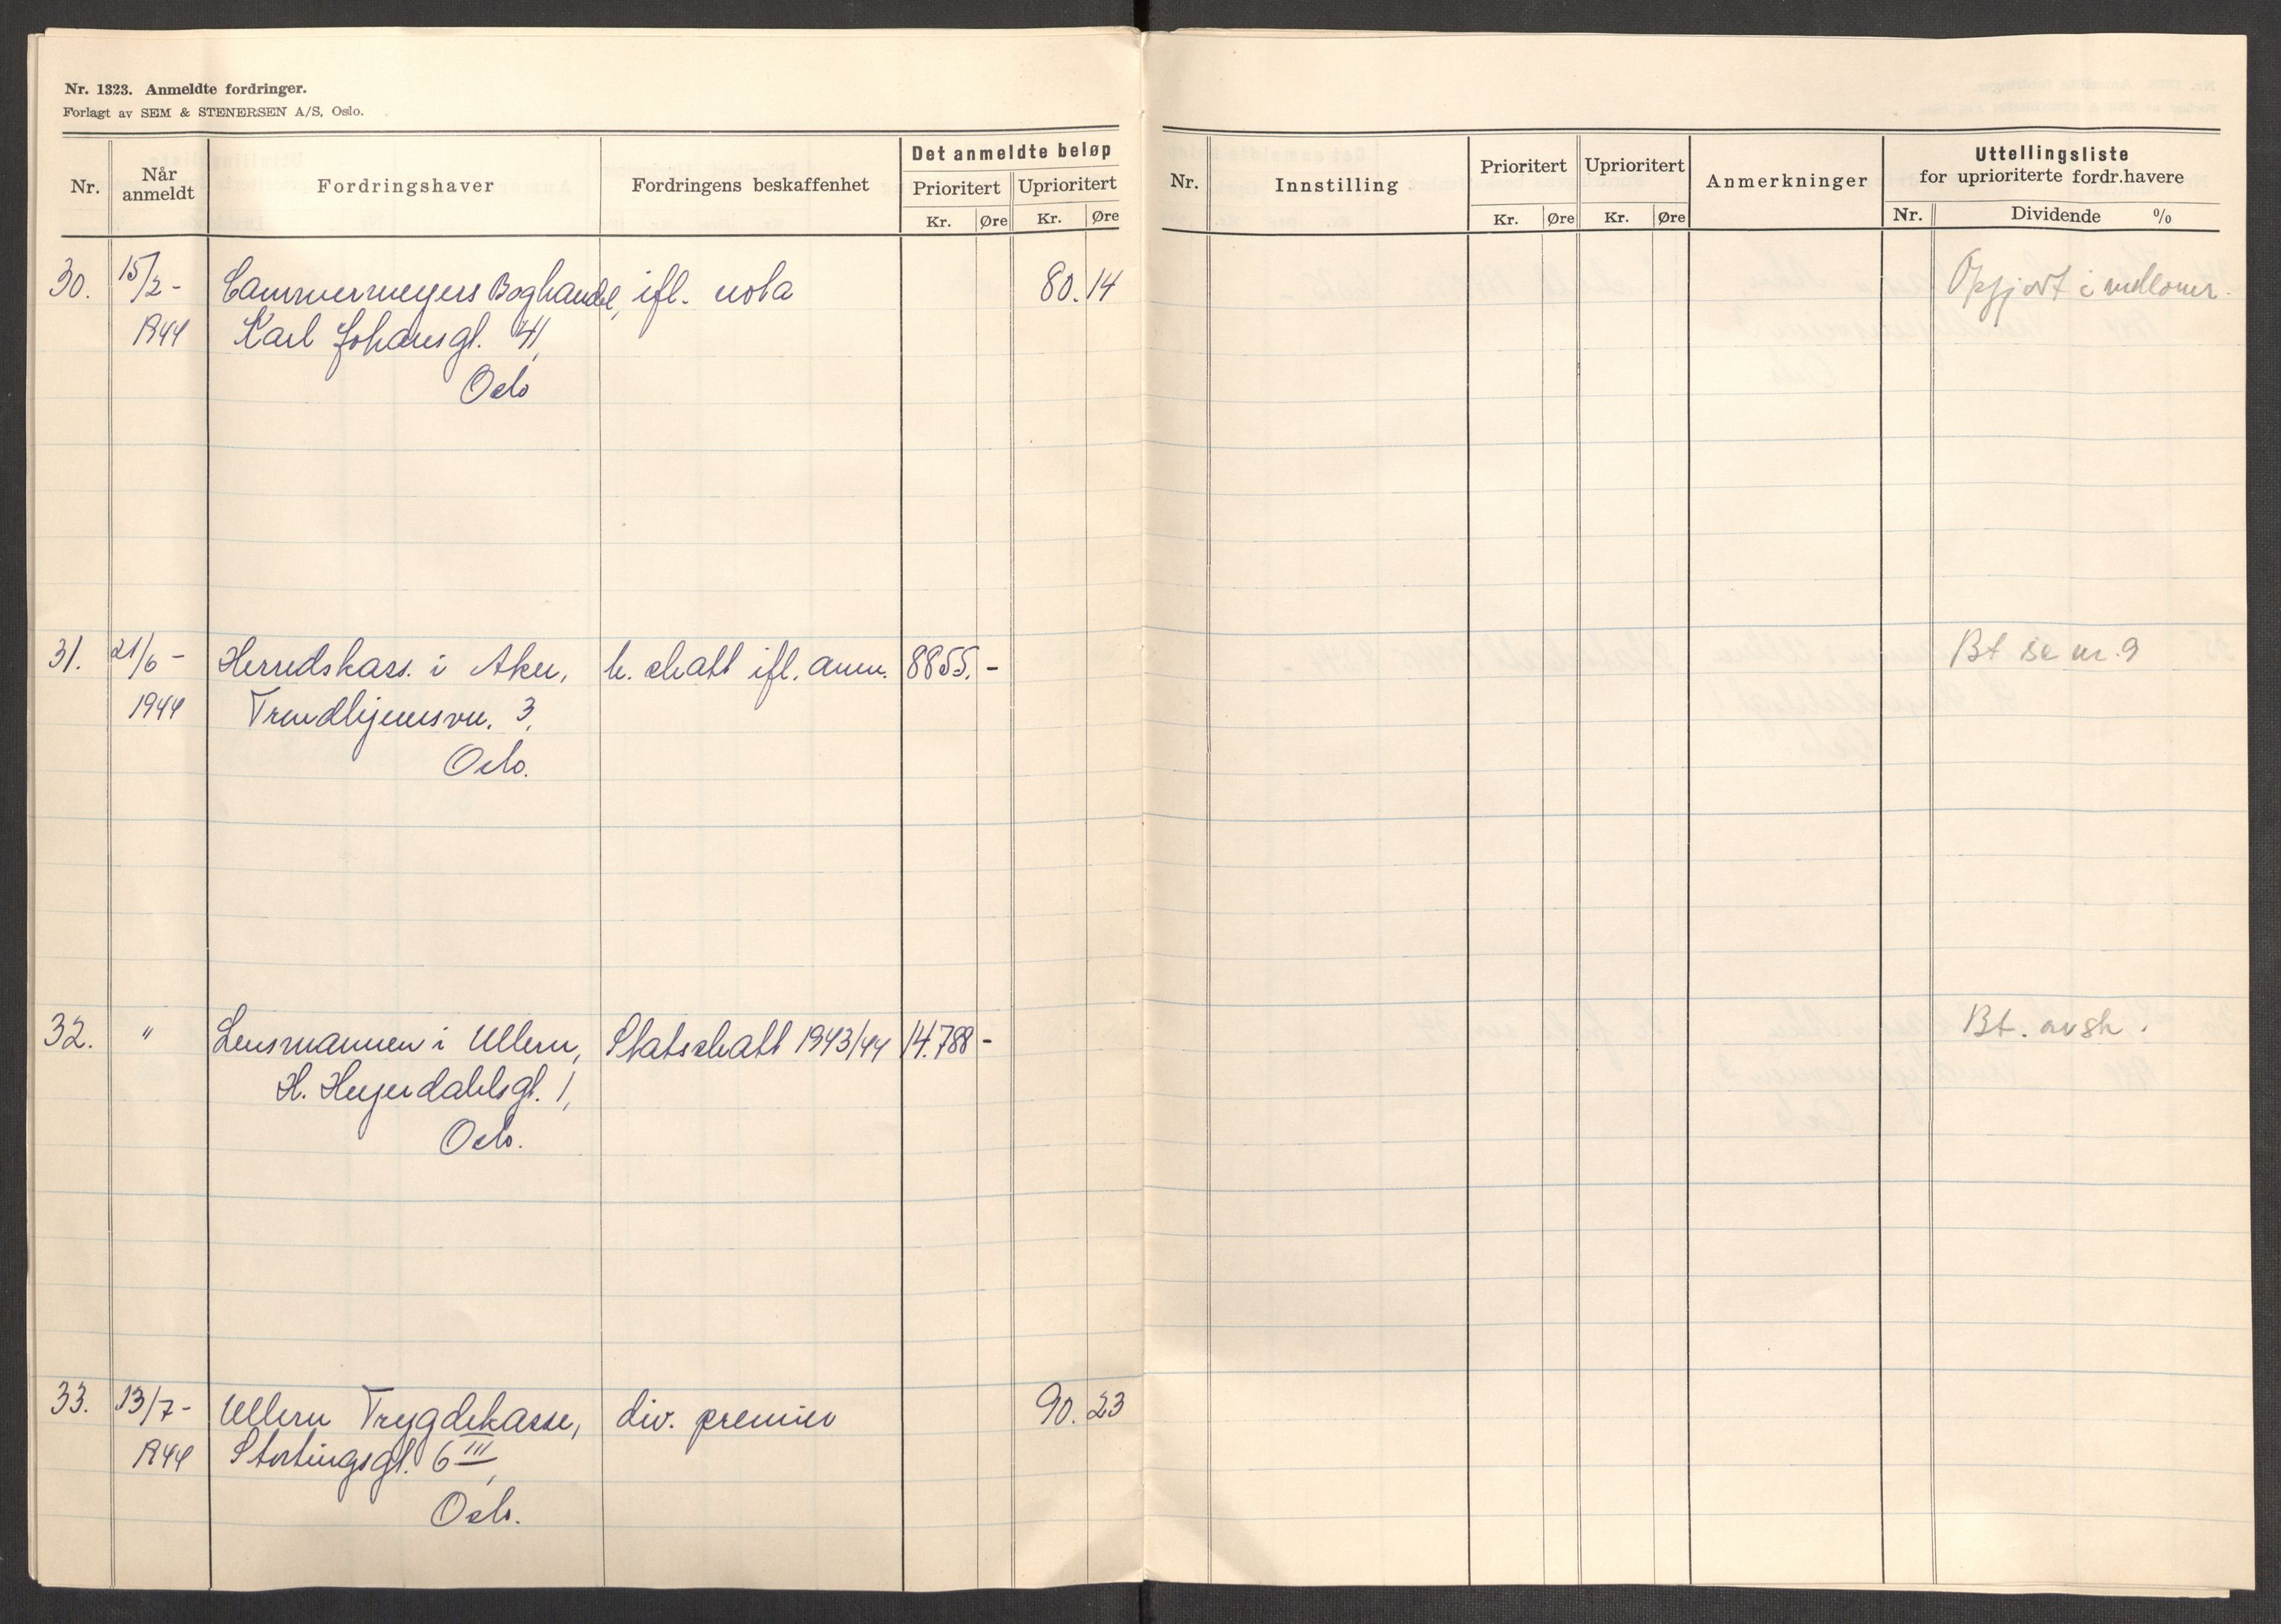 Nr. 1323. Anmeldte fordringer.
Forlagt av SEM & STENERSEN A/S, Oslo.
Nr. Når anmeldt Fordringshaver Fordringens beskaffenhet Det anmeldte beløp
Prioritert Uprioritert
Kr. Øre Kr. Øre
30. 15/2- Cammermeyers Boghandel, ifl. nota 80.14
1944 Karl Johansgt. 41,
Oslo
31. 21/6- Herredskass. i Aker, k. skatt ifl. anm. 8855.-
1944 Trondhjemsvn. 3,
Oslo.
32. " Lensmannen i Ullern, Statsskatt 1943/44 14.788-
H. Heyerdahlsgt. 1,
Oslo.
33. 13/7- Ullern Trygdekasse, div. premier 90.23
1944 Stortingsgt. 6 III,
Oslo.
Nr. Innstilling Prioritert Uprioritert Anmerkninger Uttellingsliste
for uprioriterte fordr.havere
Kr. Øre Kr. Øre Nr. Dividende %
Oppgjort i mellomr.
Bt se nr. 9
Bt. avsk.